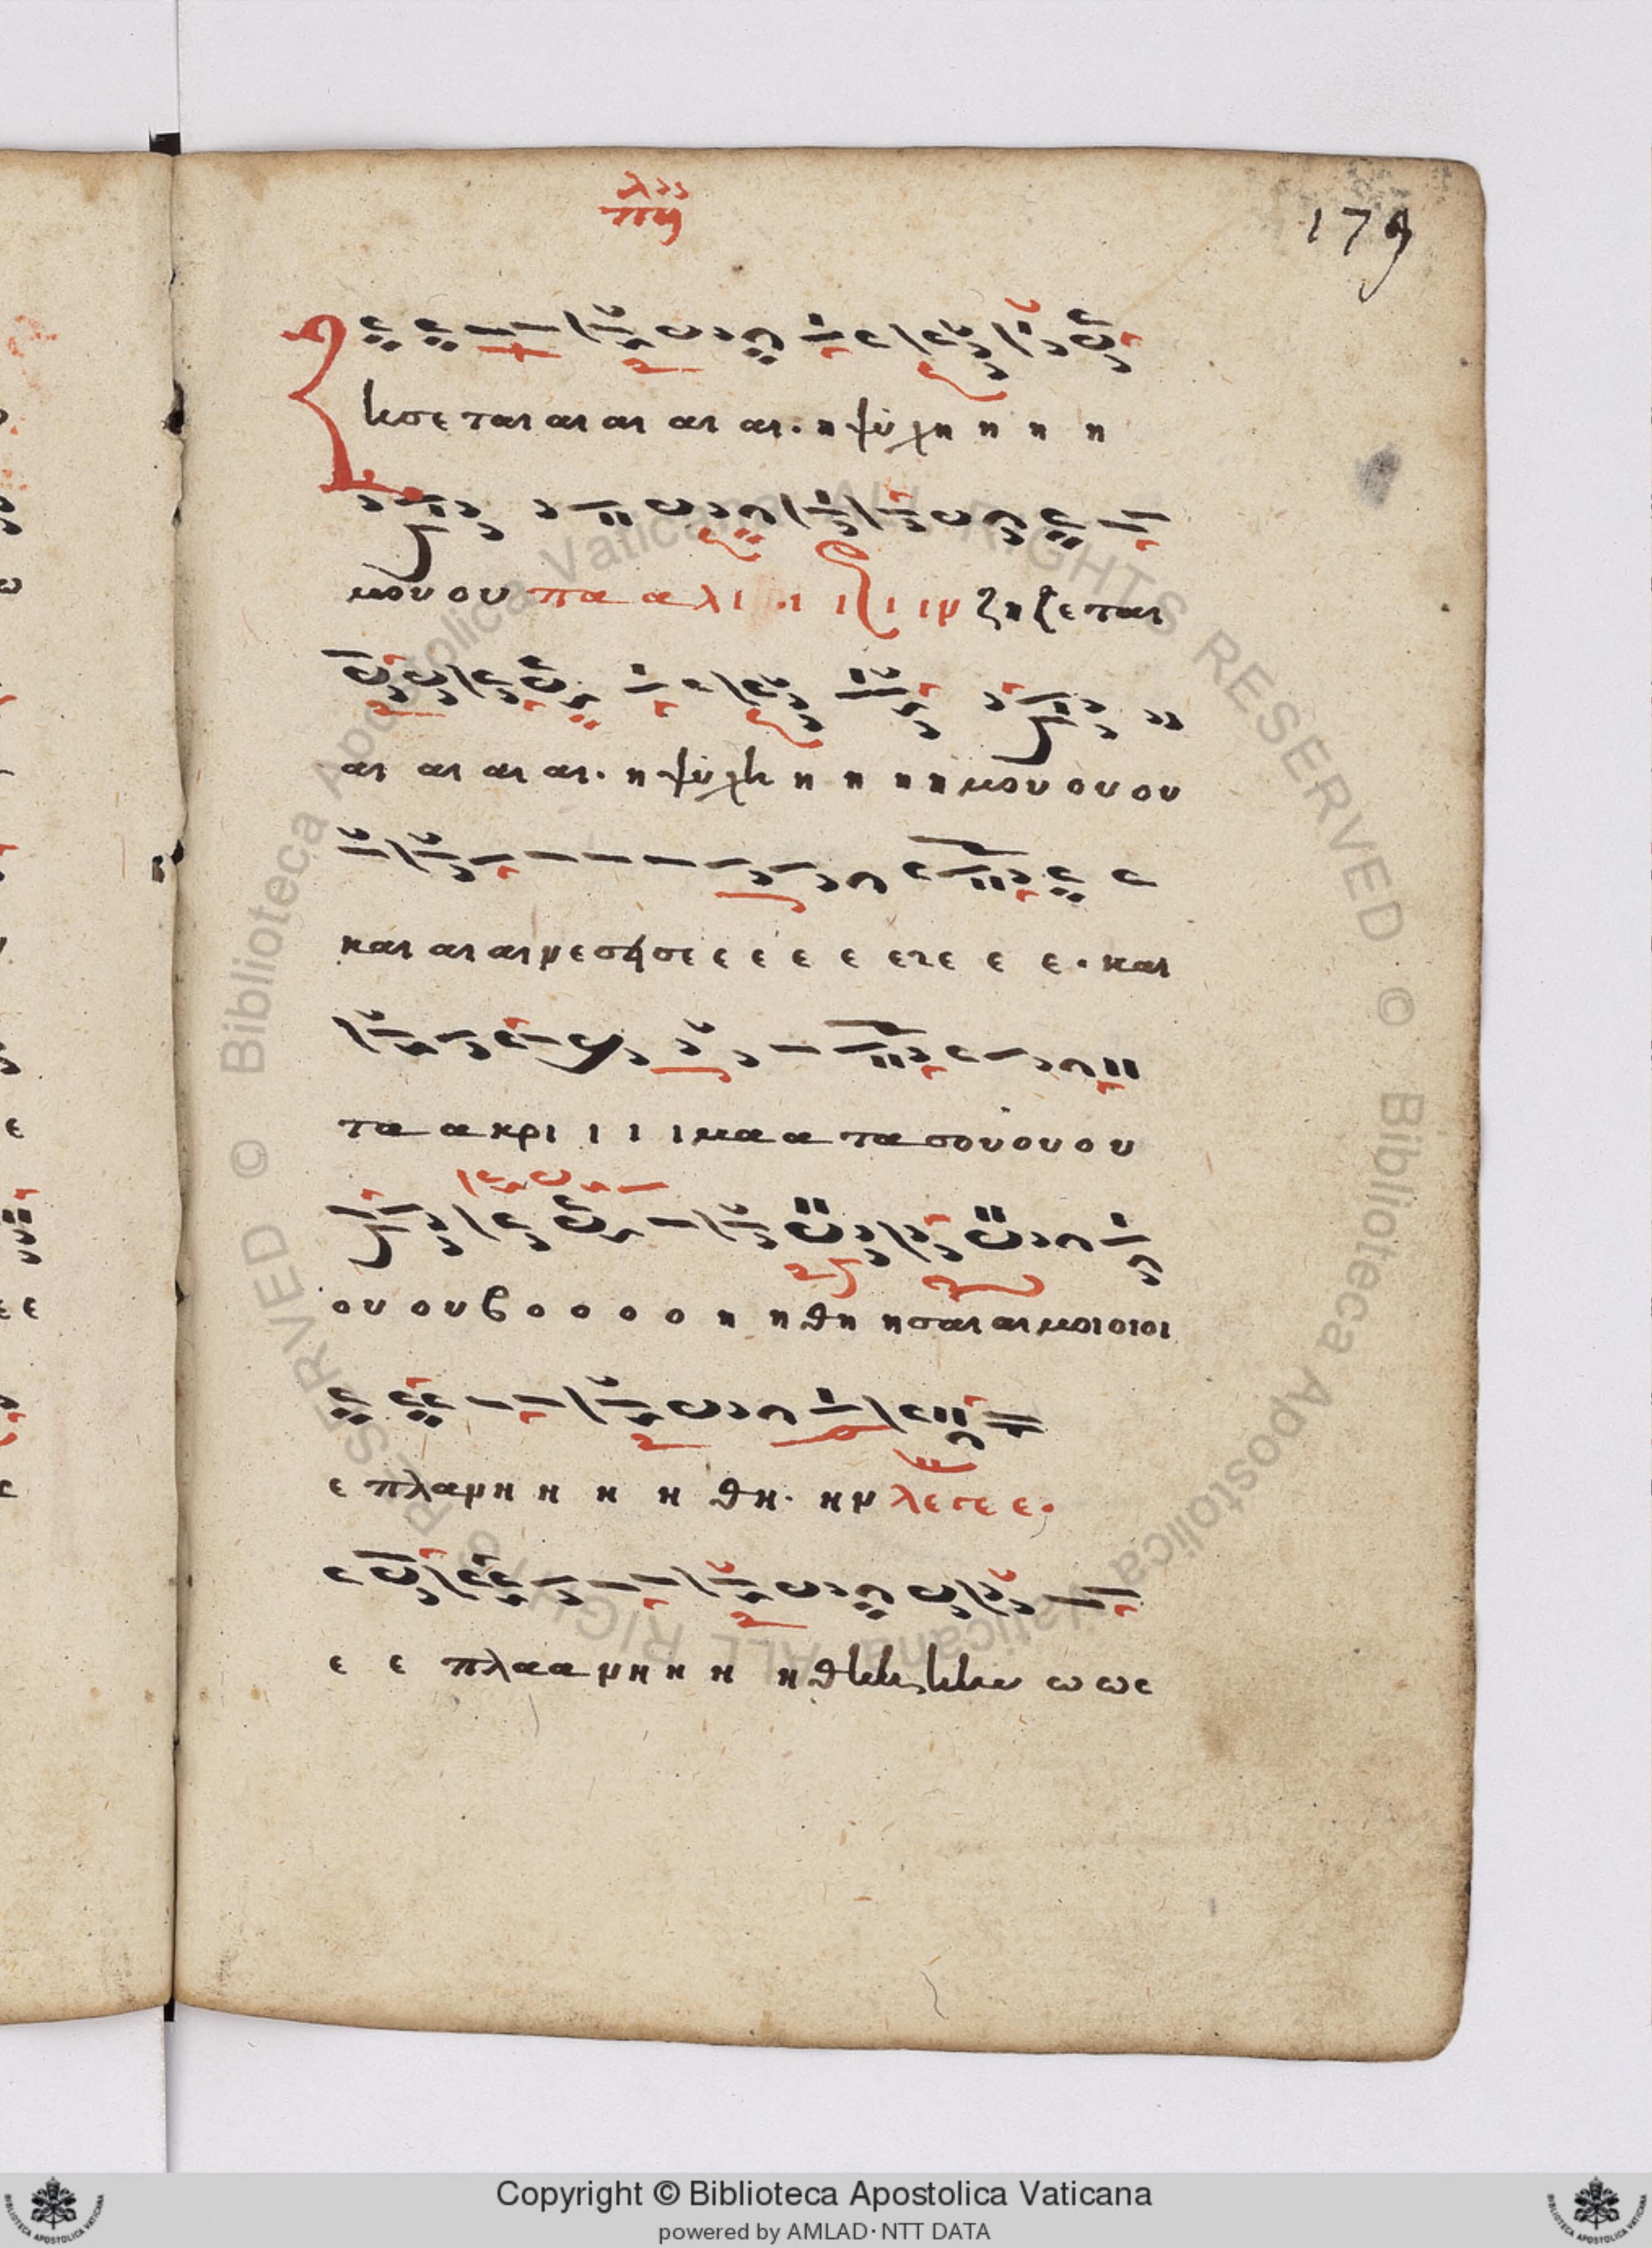 179
Ζησεται αι αι αι αι. η ψυχη η η η
μου ου πα α λι ι ι ι ιν ζησεται
αι αι αι αι. η ψυχη η η η η μου ου ου
και αι αινεσησε ε ε ε ε ετε ε ε. και
τα α κρι ι ι ιμα α τα σου ου ου
ου ου βο ο ο ο ο η ηθη ησαι αι μοι οι οι
ε πλανη η η η θη. ην λετε ε.
ε ε πλα α νη η η η θη ω ως
Copyright © Biblioteca Apostolica Vaticana
powered by AMLAD·NTT DATA
© Biblioteca Apostolica Vaticana ALL RIGHTS RESERVED
© Biblioteca Apostolica Vaticana ALL RIGHTS RESERVED